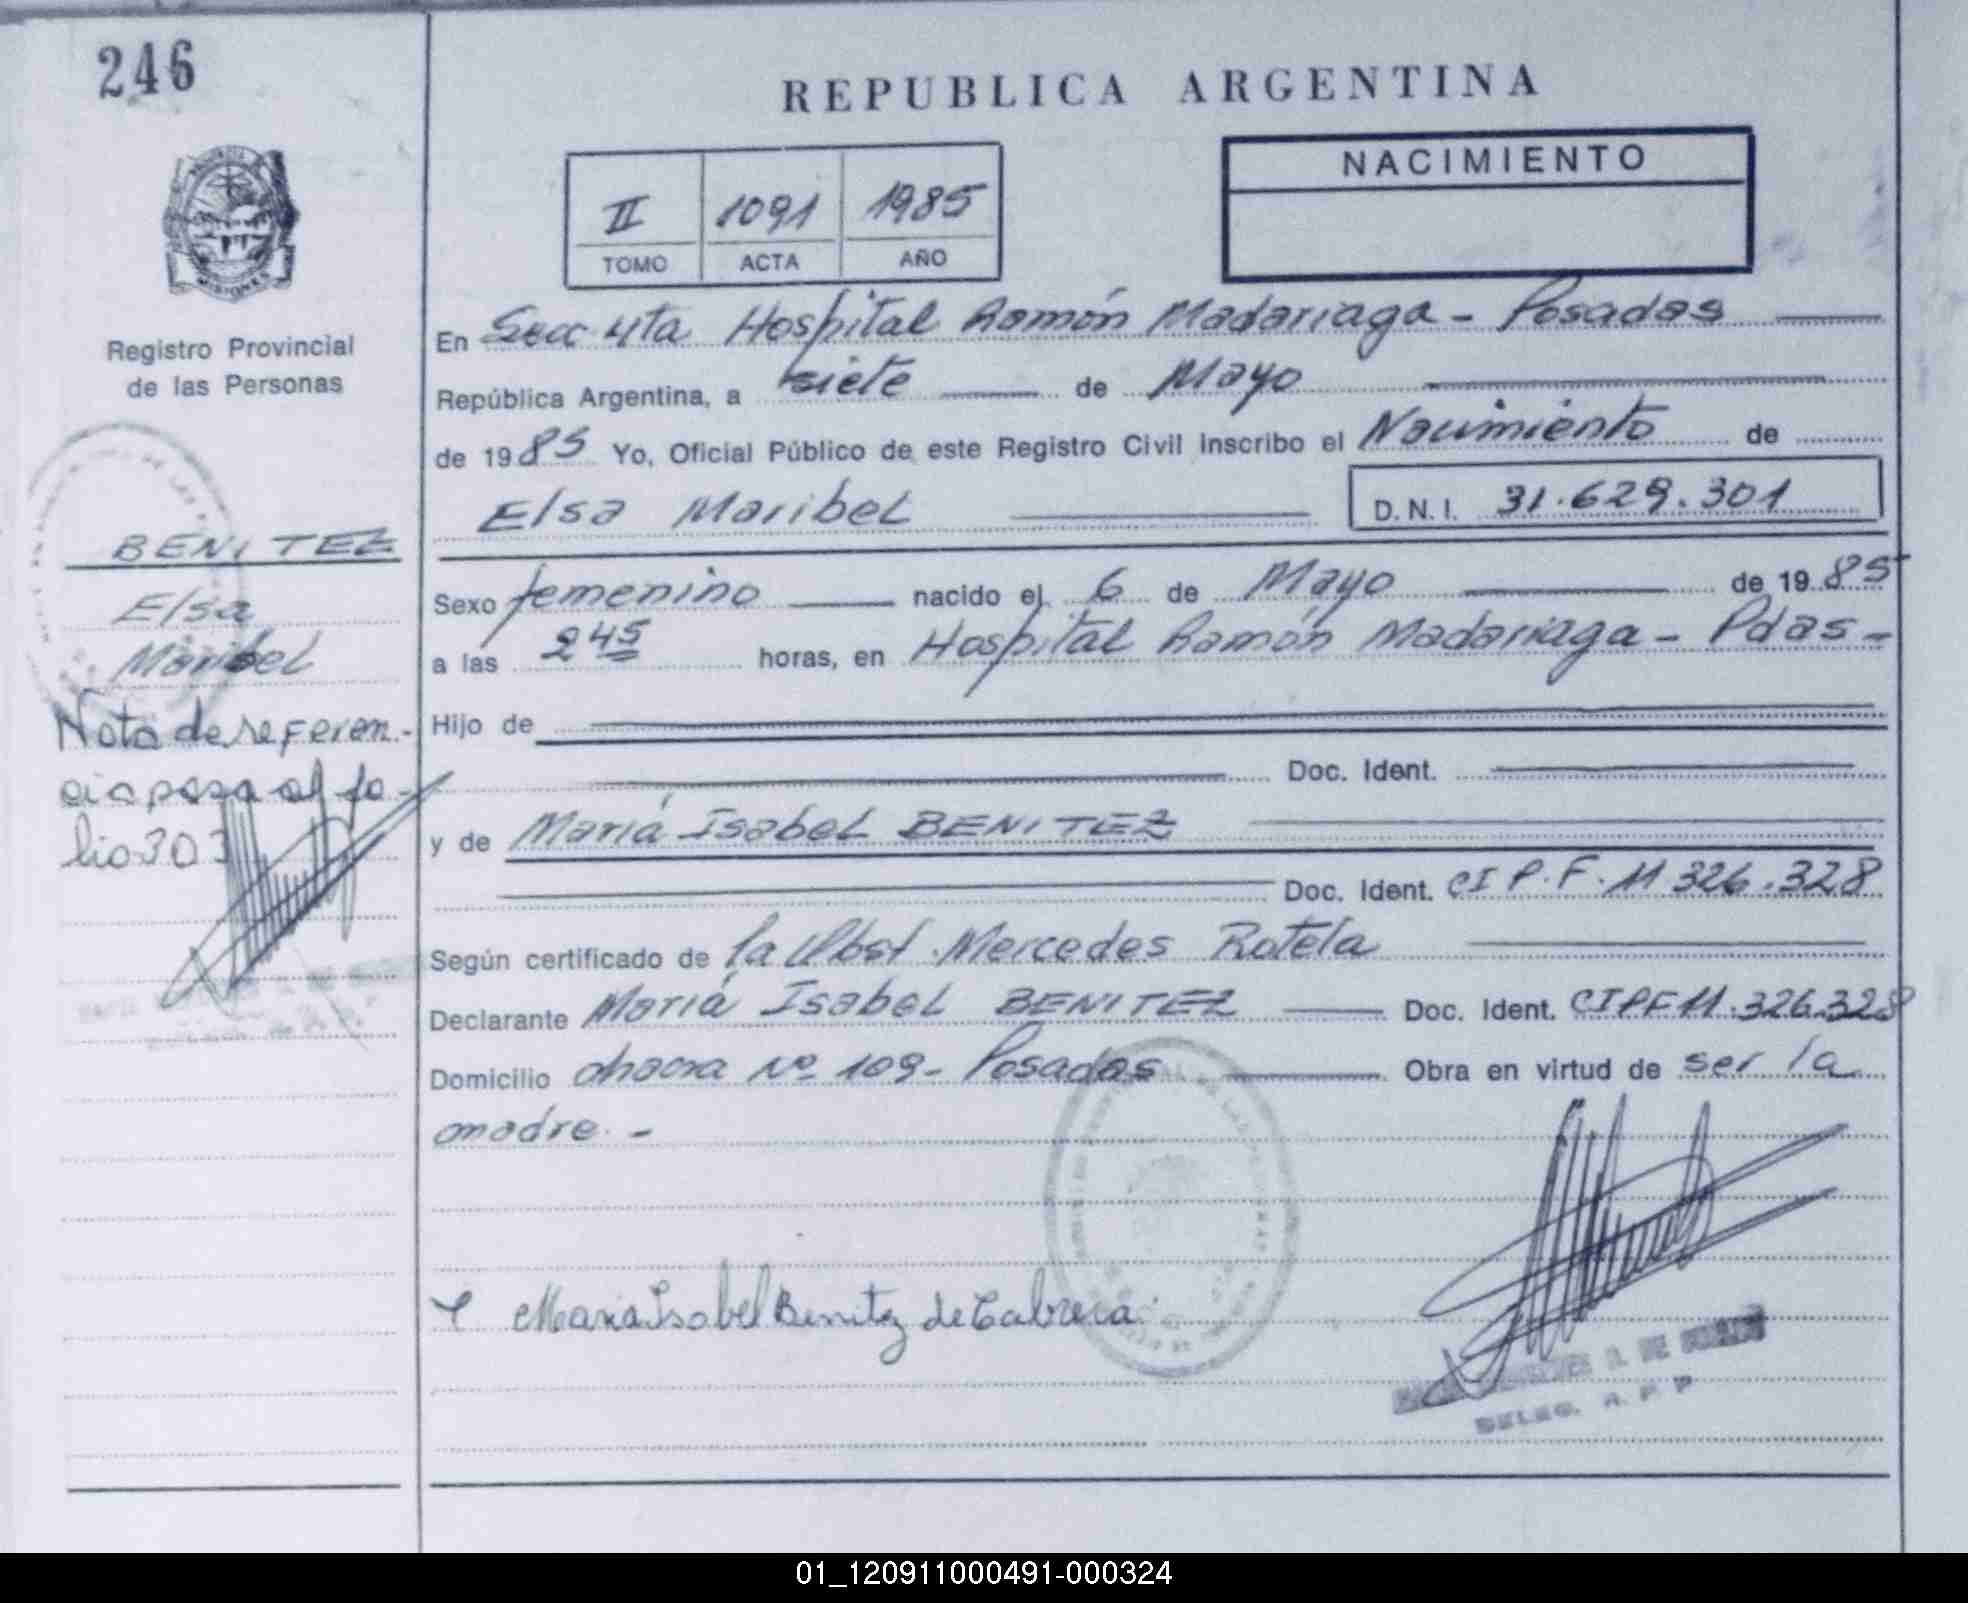 246
REPUBLICA ARGENTINA
NACIMIENTO
II 1091 1985
TOMO ACTA AÑO
MISIONES
Registro Provincial
de las Personas
En Secc 4ta Hospital Ramón Madariaga - Posadas
República Argentina, a siete de Mayo
de 1985 Yo, Oficial Público de este Registro Civil inscribo el Nacimiento de
Elsa Maribel D.N.I. 31.629.301
BENITEZ
Elsa
Maribel
Sexo femenino nacido el 6 de Mayo de 1985
a las 2 45 horas, en Hospital Ramón Madariaga - Pdas -
Nota de referen-
cia pasa al fo-
lio 303
Hijo de
Doc. Ident.
y de María Isabel BENITEZ
Doc. Ident. CI P.F. 11 326.328
Según certificado de la Obst. Mercedes Rotela
Declarante María Isabel BENITEZ Doc. Ident. CIPF 11.326.328
Domicilio chacra Nº 109- Posadas Obra en virtud de ser la
madre. -
Maria Isabel Benitez de Cabrera
DELEG. R. P. P.
01_120911000491-000324